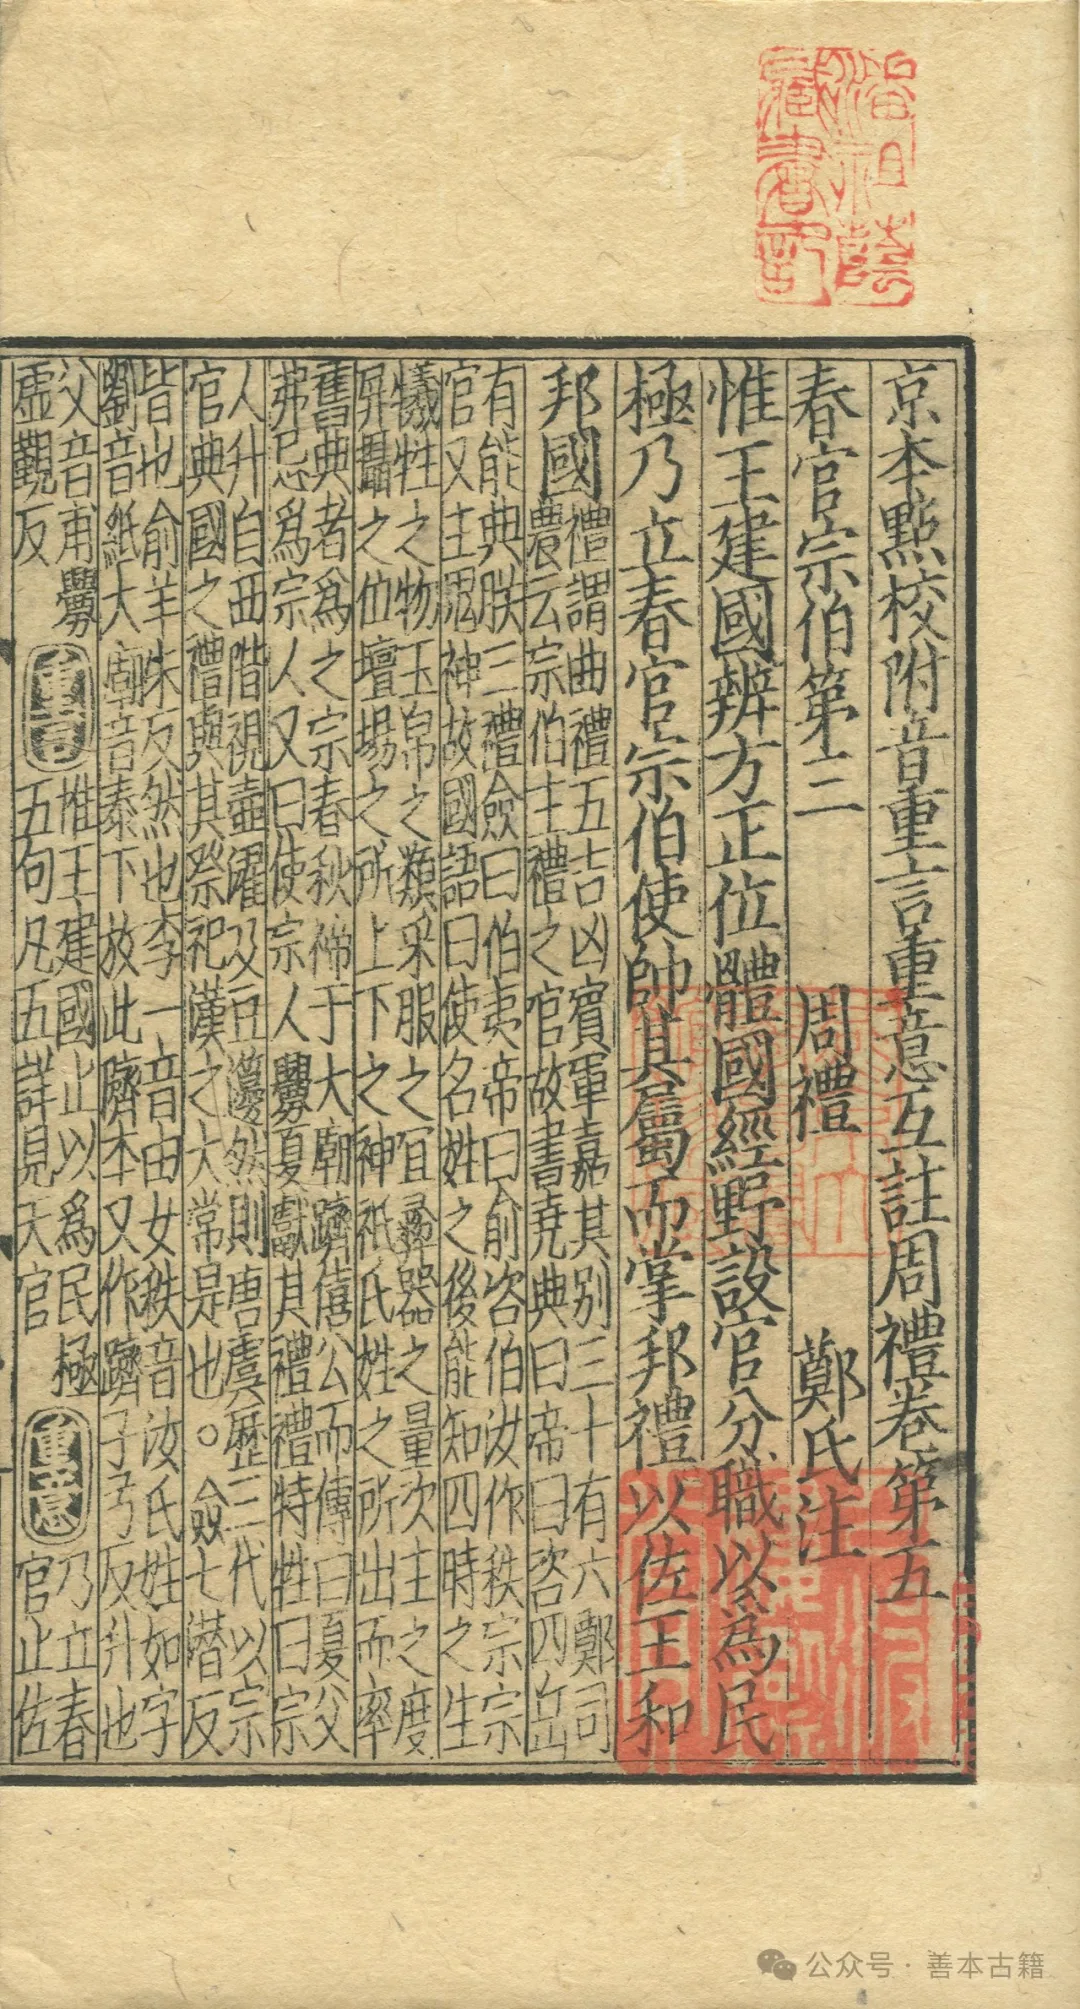 潘祖蔭
藏書記
京本點校附音重言重意互註周禮卷第五
春官宗伯第三 周禮 鄭氏注
惟王建國辨方正位體國經野設官分職以為民
極乃立春官宗伯使帥其屬而掌邦禮以佐王和
邦國禮謂曲禮五吉凶賓軍嘉其别三十有六鄭司
農云宗伯主禮之官故書堯典曰帝曰咨四岳
有能典朕三禮僉曰伯夷帝曰俞咨伯汝作秩宗宗
官又主鬼神故國語曰使名姓之後能知四時之生
犧牲之物玉帛之類采服之宜彝器之量次主之度
屏攝之位壇場之所上下之神祇氏姓之所出而率
舊典者為之宗春秋禘于大廟躋僖公而傳曰夏父
弗忌為宗人又曰使宗人釁夏獻其禮禮特牲曰宗
人升自西階視壺濯及豆籩然則唐虞歷三代以宗
官典國之禮與其祭祀漢之大常是也○僉七潛反
皆也俞羊朱反然也李一音由女秩音汝氏姓如字
劉音紙大廟音泰下放此隮本又作躋子兮反升也
父音甫釁
虛覲反
重言
惟王建國止以為民極
五句凡五詳見天官
重意
乃立春
官止佐
公众号·善本古籍